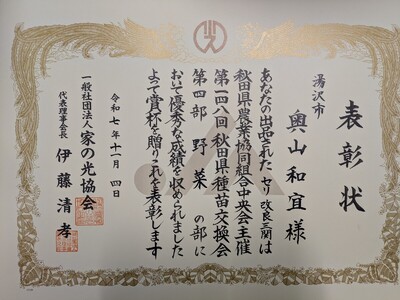 表彰状
湯沢市
奥山和宜様
あなたの出品されたセリ改良三関は
秋田県農業協同組合中央会主催
第一四八回秋田県種苗交換会
第四部野菜の部に
おいて優秀な成績を収められました
よって賞杯を贈りこれを表彰します
令和七年十一月四日
一般社団法人家の光協会
代表理事会長伊藤清孝